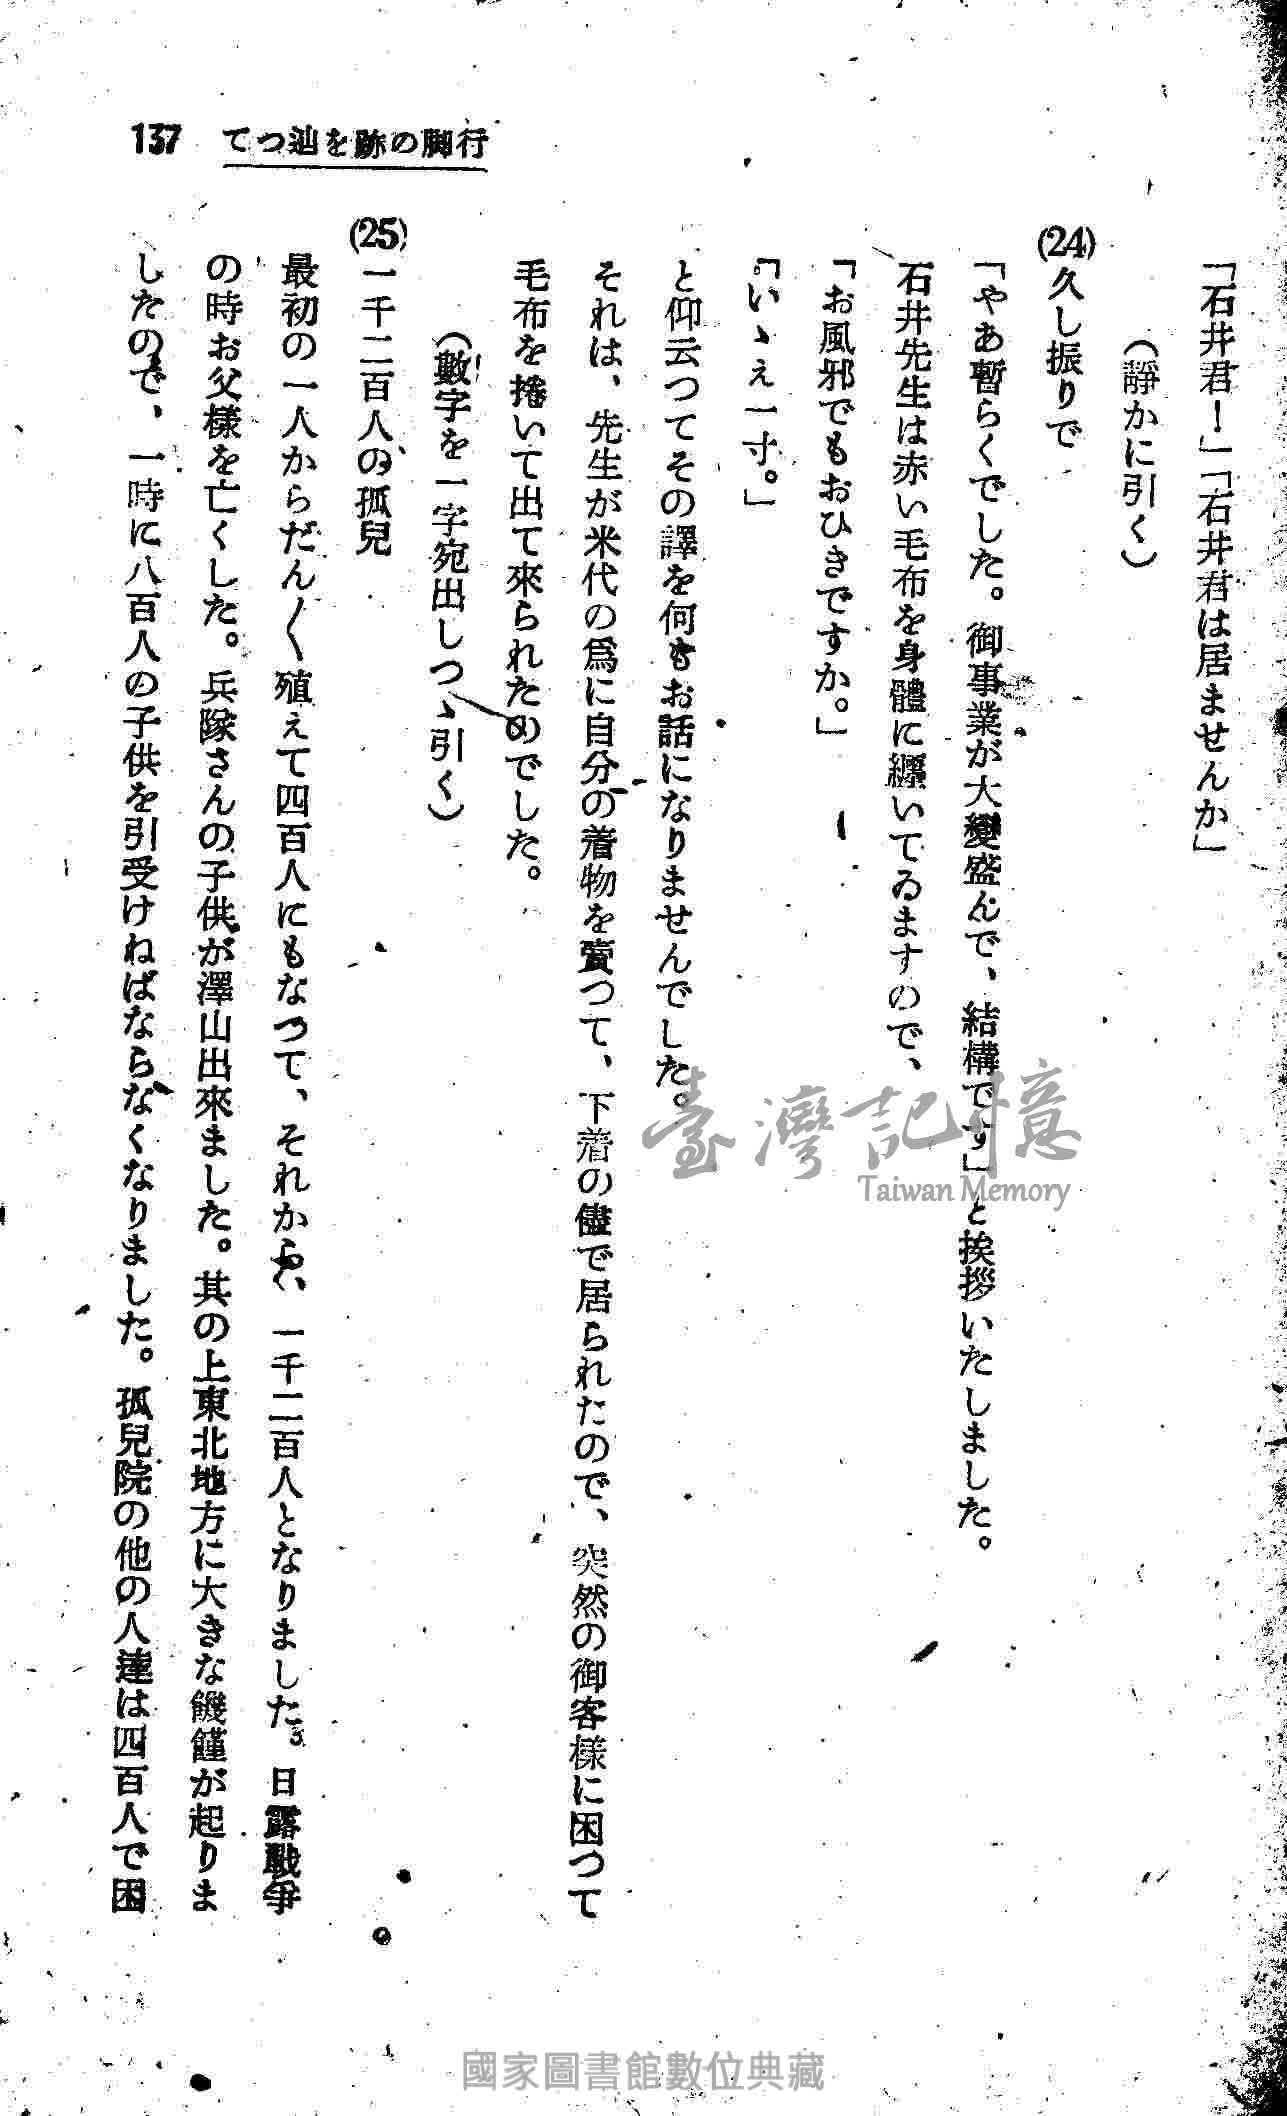 137 行脚の跡を辿つて
「石井君！」「石井君は居ませんか」
（靜かに引く）
(24) 久し振りで
「やあ暫らくでした。御事業が大變盛んで、結構です」と挨拶いたしました。
石井先生は赤い毛布を身體に纒いてゐますので、
「お風邪でもおひきですか。」
「いゝえ一寸。」
と仰云つてその譯を何もお話になりませんでした。
それは、先生が米代の爲に自分の着物を賣つて、下着の儘で居られたので、突然の御客樣に困つて
毛布を捲いて出て來られたのでした。
（數字を一字宛出しつゝ引く）
(25) 一千二百人の孤兒
最初の一人からだん〱殖えて四百人にもなつて、それから、一千二百人となりました。日露戰爭
の時お父樣を亡くした。兵隊さんの子供が澤山出來ました。其の上東北地方に大きな饑饉が起りま
したので、一時に八百人の子供を引受けねばならなくなりました。孤兒院の他の人達は四百人で困
臺灣記憶
Taiwan Memory
國家圖書館數位典藏